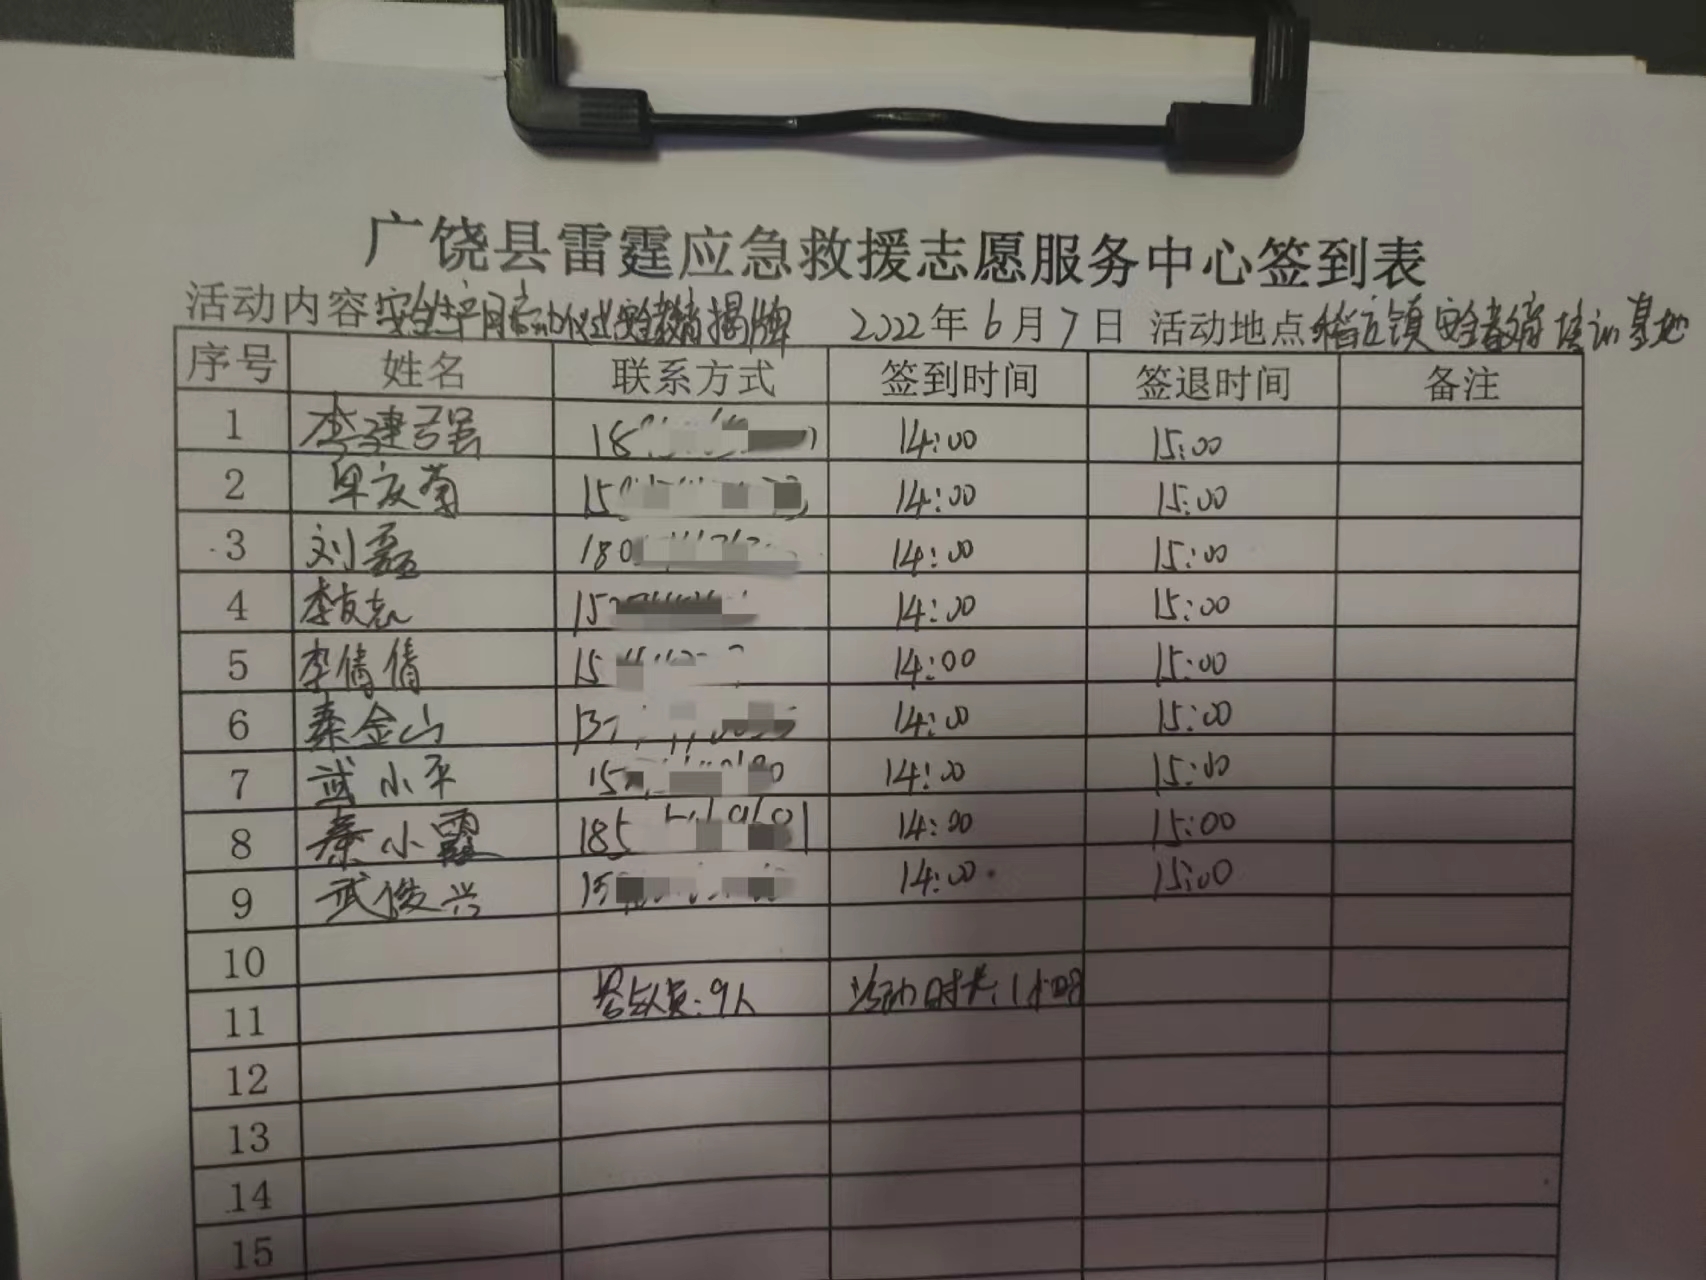 广饶县雷霆应急救援志愿服务中心签到表
活动内容安全生产月启动仪式安全教育揭牌 2022年6月7日 活动地点稻庄镇安全教育培训基地
序号 姓名 联系方式 签到时间 签退时间 备注
1 李建强 18 14:00 15:00
2 15 14:00 15:00
3 刘磊 180 14:00 15:00
4 李友志 15 14:00 15:00
5 李倩倩 15 14:00 15:00
6 秦金山 13 14:00 15:00
7 武小平 15 14:00 15:00
8 秦小霞 185 14:00 15:00
9 武俊兴 15 14:00 15:00
10
11 参与人员:9人 活动时长:1小时
12
13
14
15